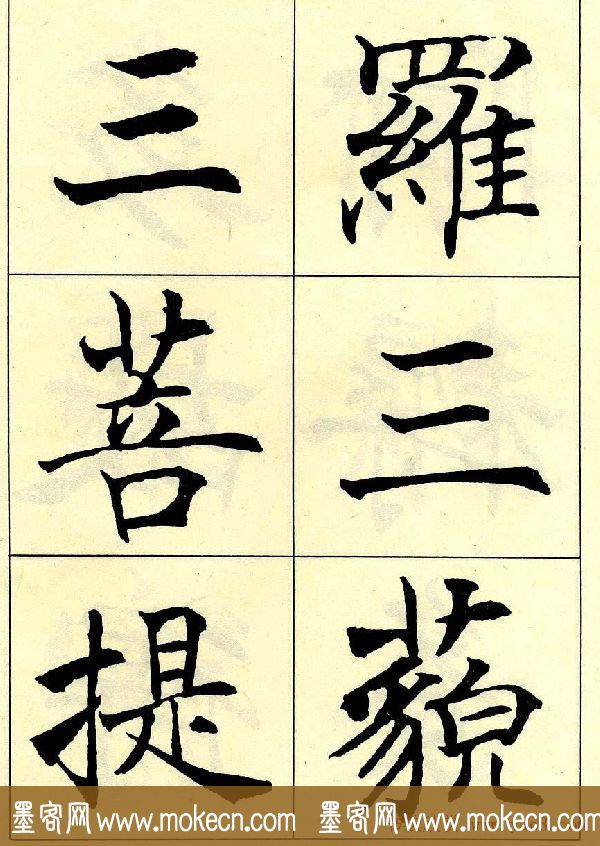 羅三藐
三菩提
墨客网 www.mokecn.com 墨客网 www.mokecn.com